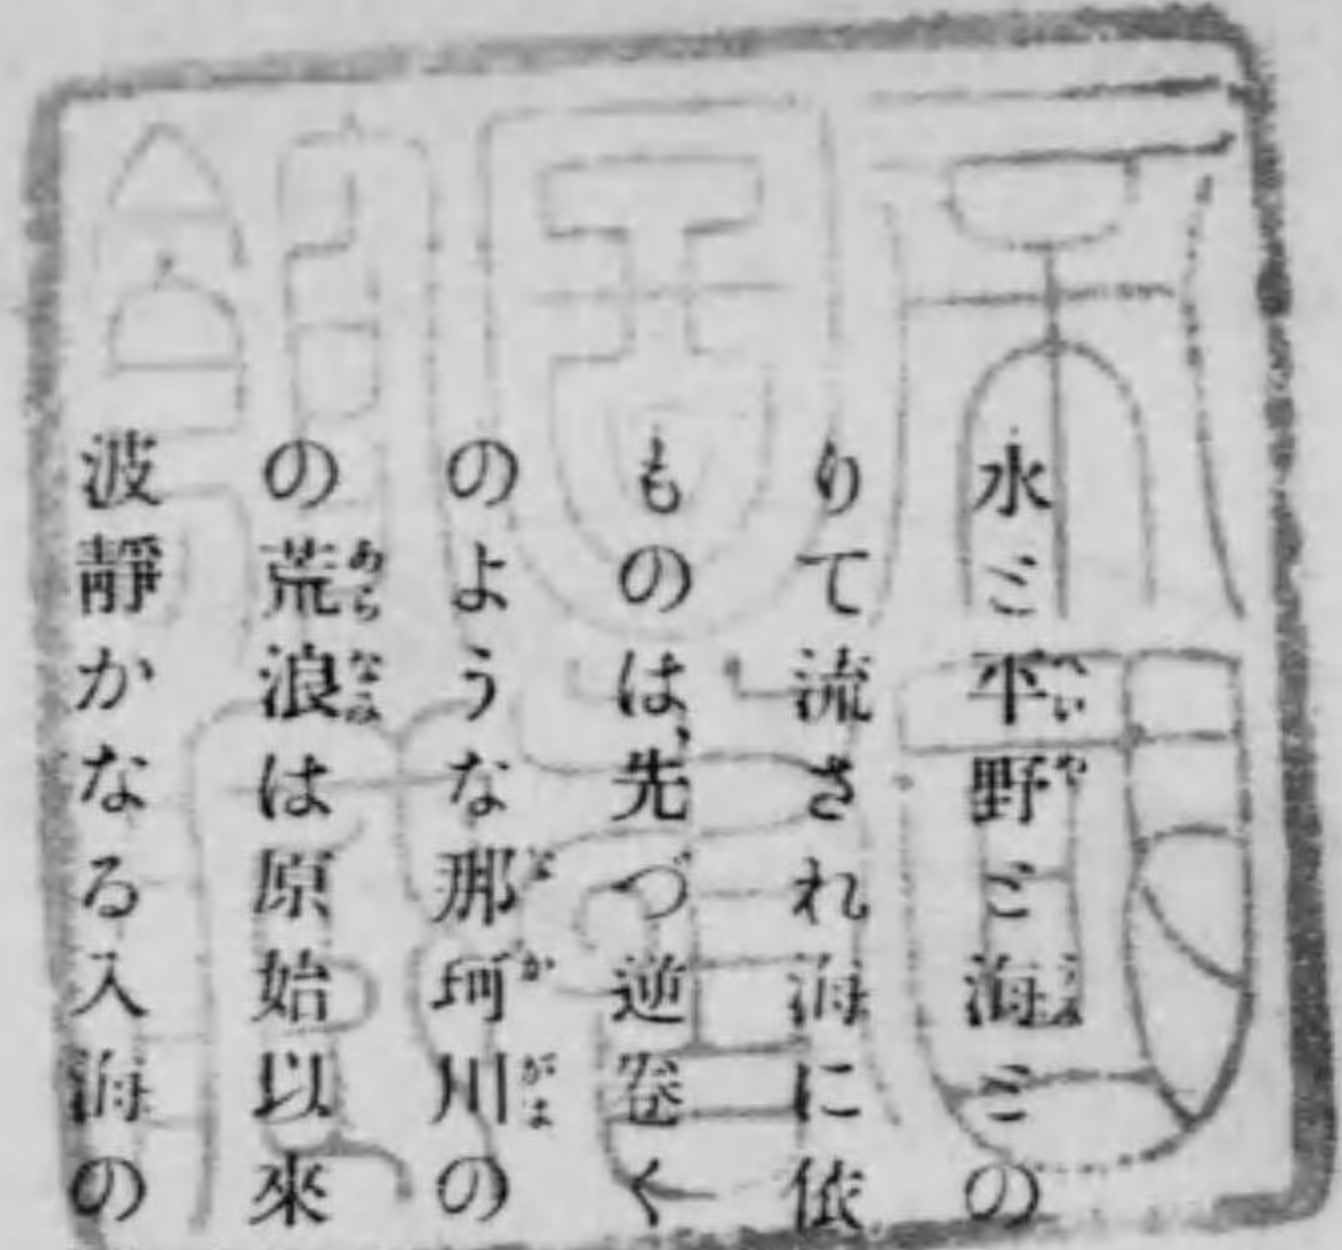 水と平野と海との
りて流され海に依
ものは、先づ逆巻く
のような那珂川の
の荒浪は原始以來
波靜かなる入海の